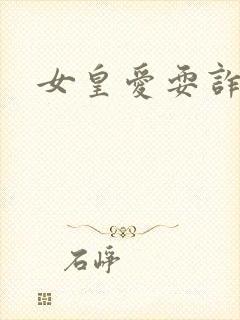 女皇愛耍詐
石崢